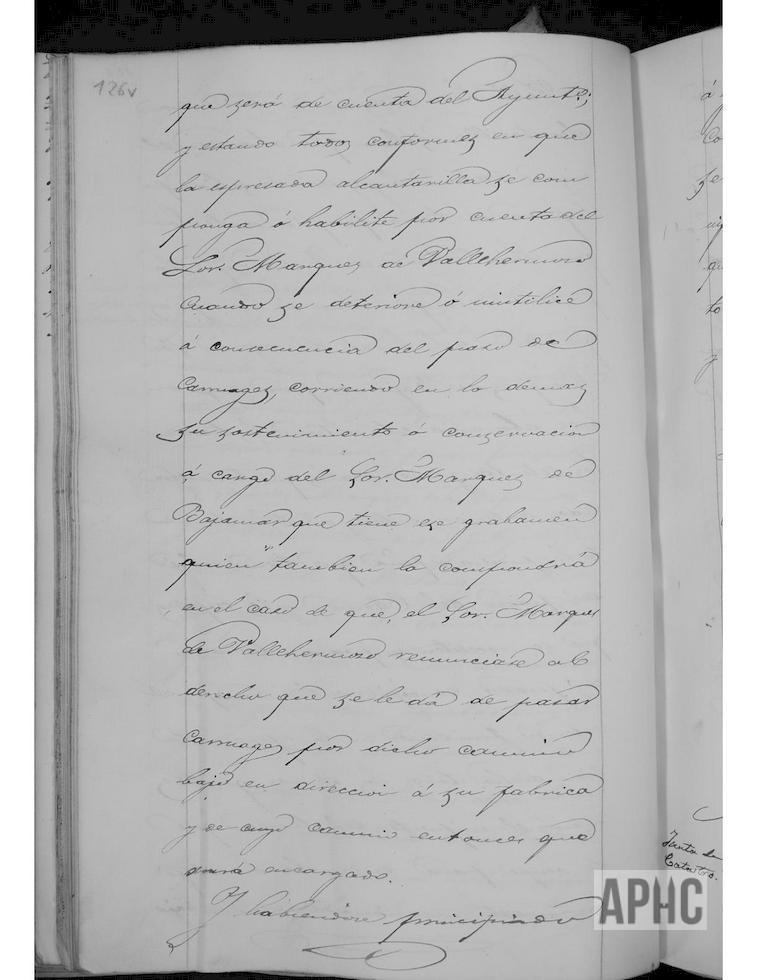 126v
que será de cuenta del Ayunt.º;
y estando todos conformes en que
la espresada alcantarilla se com
ponga ó habilite por cuenta del
Sor. Marques de Vallehermoso
cuando se deteriore ó inutilice
á consecuencia del paso de
Carruages, corriendo en lo demas
su sostenimiento ó conservacion
á cargo del Sor. Marques de
Bajamar que tiene ese grabamen
quien tambien la compondrá
en el caso de que, el Sor. Marques
de Vallehermoso renunciase al
derecho que se le dá de pasar
carruages por dicho camino
bajo en direccion á su fabrica
y de cuyo camino entonces que
dará encargado.
Y habiendose principiado
á
Co
se
qu
to
y
Junta de
Catastro.
APHC